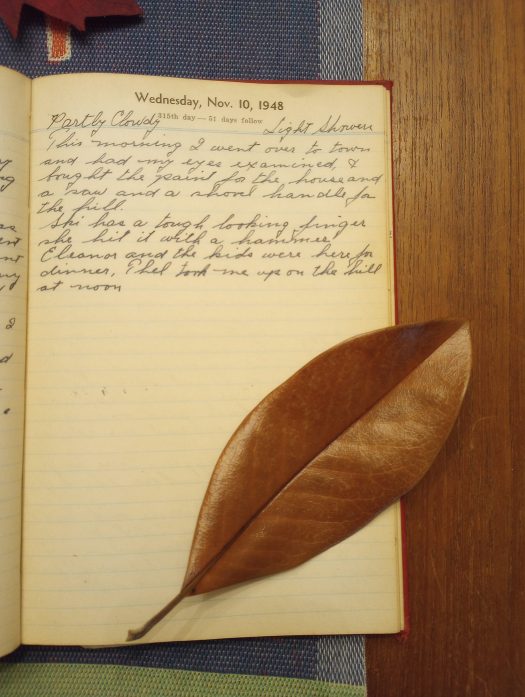 Wednesday, Nov. 10, 1948
315th day — 51 days follow
Partly Cloudy Light Showers
This morning I went over to town
and had my eyes examined, &
bought the paint for the house and
a saw and a shovel handle for
the hill.
Ski has a tough looking finger
she hit it with a hammer.
Eleanor and the kids were here for
dinner, Ethel took me up on the hill
at noon